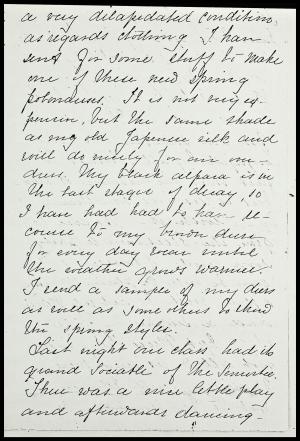 a very dilapedated condition
as regards clothing. I have
sent for some stuff to make
one of these new spring
polonaises. It is not very ex-
pensive, but the same shade
as my old Japenese silk and
will do nicely for an over-
dress. My black alpaca is in
the last stages of decay, so
I have had had to have re-
course to my brown dress
for every day wear until
the weather grows warmer.
I send a sample of my dress
as well as some others to show
the spring styles.
Last night our class had its
grand Sociable of the Semester.
There was a nice little play
and afterwards dancing-